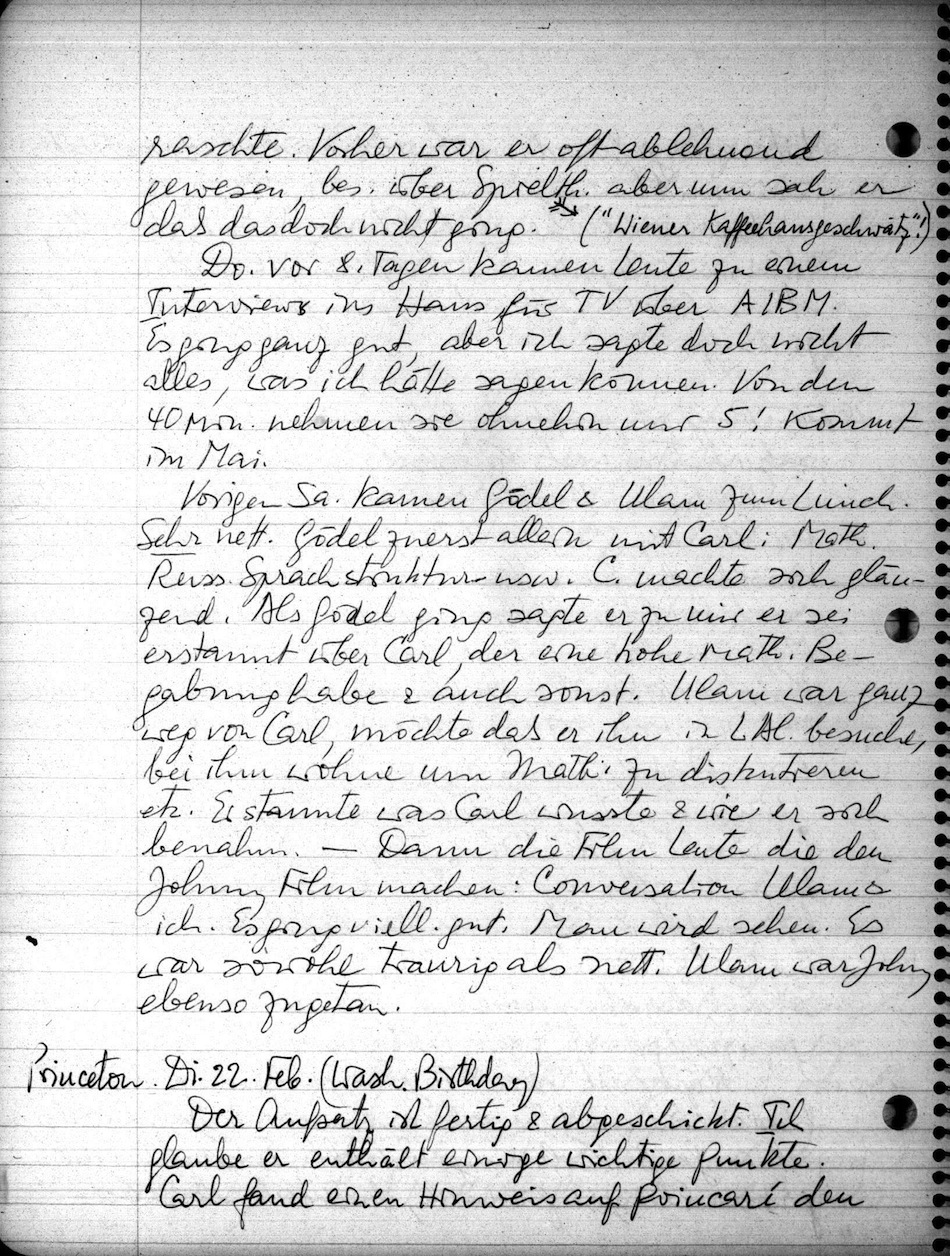 raschte. Vorher war er oft ablehnend
gewesen, bes. über Spielth. aber nun sah er
daß das doch nicht ging. ("Wiener Kaffeehausgeschwätz"!)
Do. vor 8. Tagen kamen Leute zu einem
Interview ins Haus fürs TV über A IBM.
Es ging ganz gut, aber ich sagte doch nicht
alles, was ich hätte sagen können. Von den
40 Min. nehmen sie ohnehin nur 5! Kommt
im Mai.
Vorigen Sa. kamen Gödel & Ulam zum Lunch.
Sehr nett. Gödel zuerst allein mit Carl: Math.
Russ. Sprachstruktur usw. C. machte sich glän-
zend. Als Gödel ging sagte er zu mir er sei
erstaunt über Carl, der eine hohe math. Be-
gabung habe & auch sonst. Ulam war ganz
weg von Carl, möchte daß er ihn in LAl. besuche,
bei ihm wohne um Math. zu diskutieren
etc. Er staunte was Carl wusste & wie er sich
benahm. — Dann die Film Leute die den
Johnny Film machen: Conversation Ulam &
ich. Es ging viell. gut. Man wird sehen. Es
war sowohl traurig als nett. Ulam war Johnny
ebenso zugetan.
Princeton. Di. 22. Feb. (Wash. Birthday)
Der Aufsatz ist fertig & abgeschickt. Ich
glaube er enthält einige wichtige Punkte.
Carl fand einen Hinweis auf Poincaré den